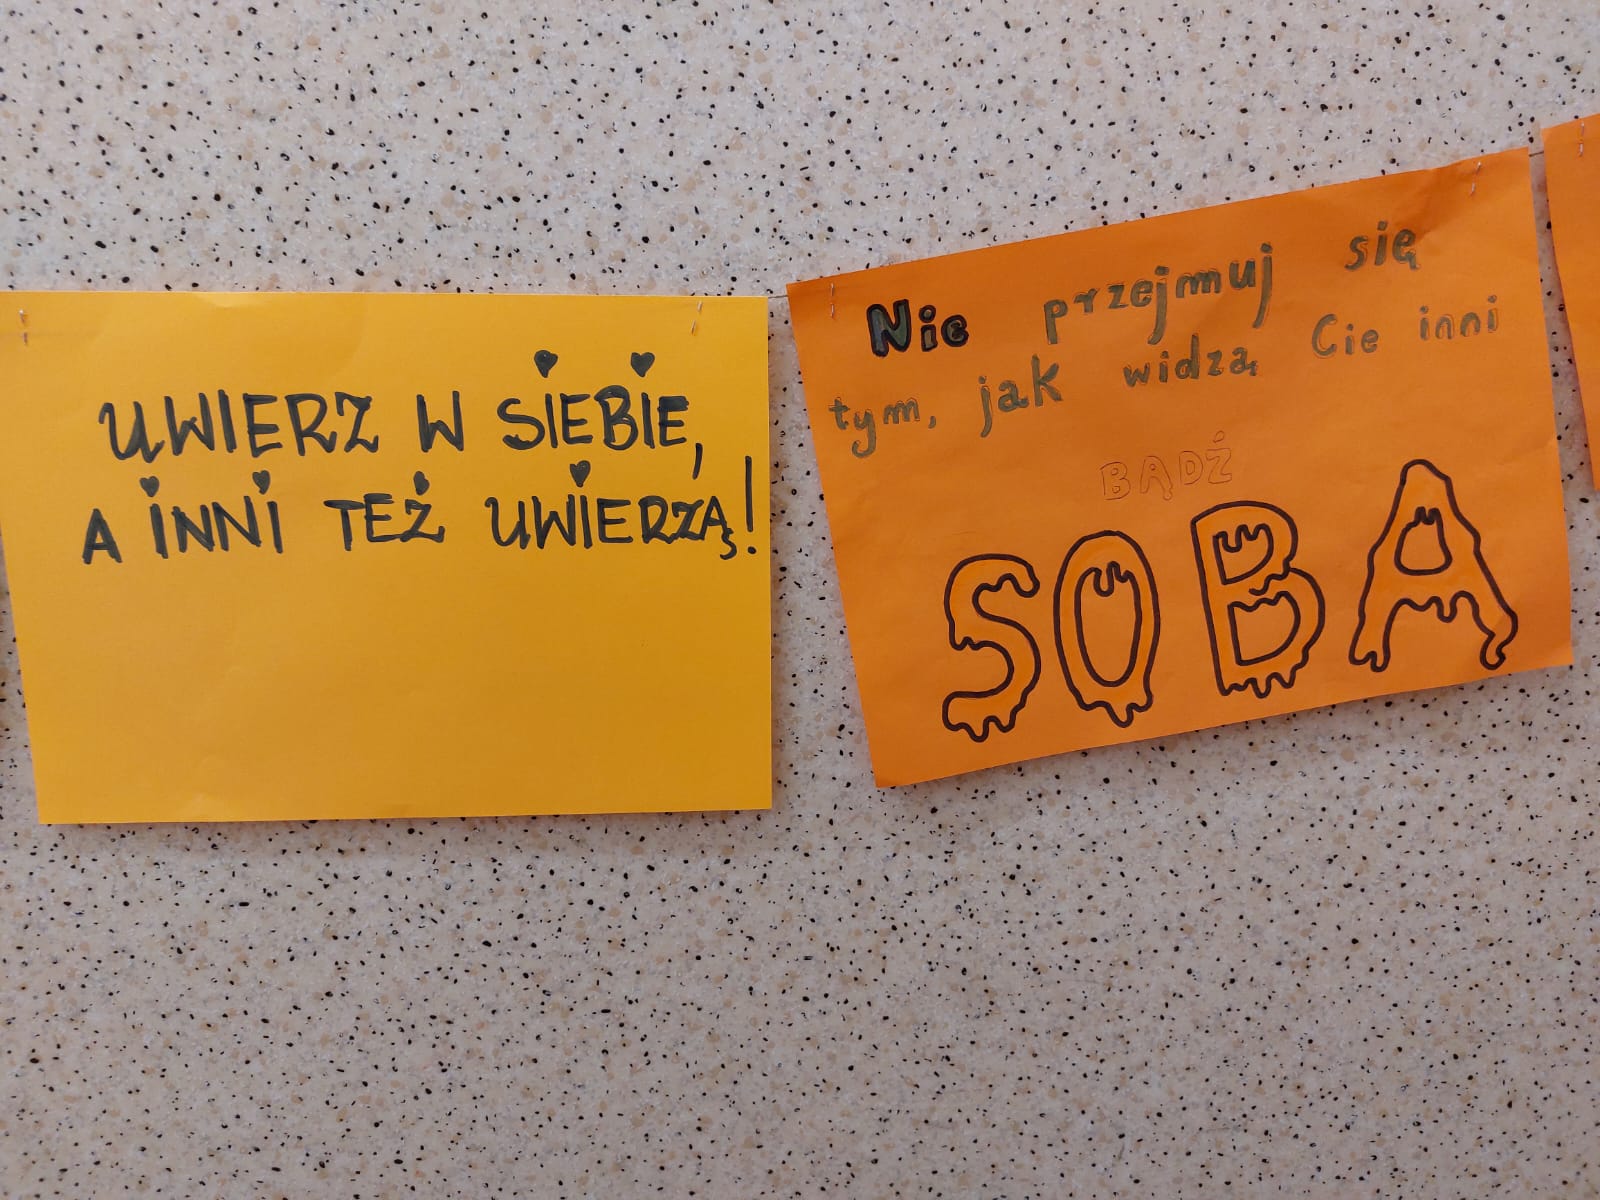 UWIERZ W SIEBIE,
A INNI TEŻ UWIERZĄ!
Nie przejmuj się
tym, jak widzą Cie inni
BĄDŹ
SOBA